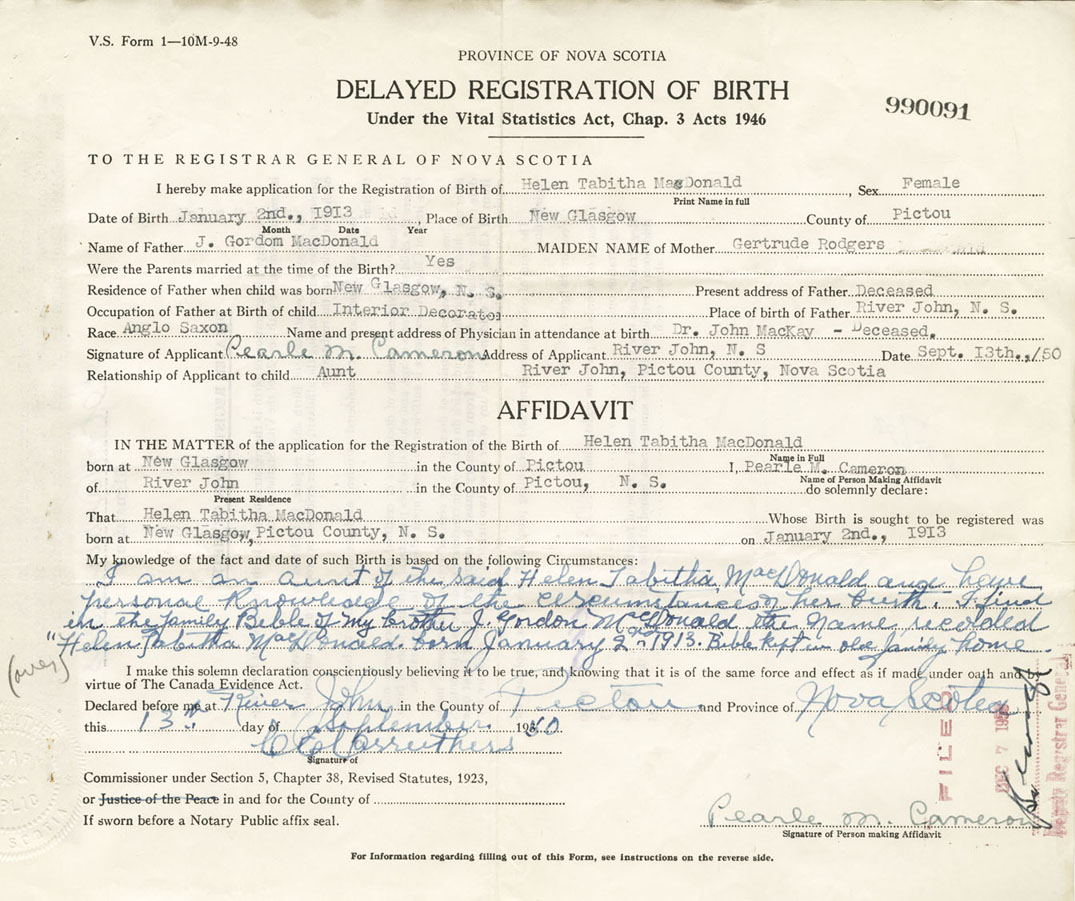 V.S. Form 1—10M-9-48
PROVINCE OF NOVA SCOTIA
DELAYED REGISTRATION OF BIRTH
990091
Under the Vital Statistics Act, Chap. 3 Acts 1946
TO THE REGISTRAR GENERAL OF NOVA SCOTIA
I hereby make application for the Registration of Birth of Helen Tabitha MacDonald, Sex Female
Print Name in full
Date of Birth January 2nd., 1913, Place of Birth New Glasgow County of Pictou
Month Date Year
Name of Father J. Gordom MacDonald MAIDEN NAME of Mother Gertrude Rodgers
Were the Parents married at the time of the Birth? Yes
Residence of Father when child was born New Glasgow, N. S. Present address of Father Deceased
Occupation of Father at Birth of child Interior Decorator Place of birth of Father River John, N. S.
Race Anglo Saxon Name and present address of Physician in attendance at birth Dr. John MacKay - Deceased.
Signature of Applicant Pearle M. Cameron Address of Applicant River John, N. S Date Sept. 13th., /50
Relationship of Applicant to child Aunt River John, Pictou County, Nova Scotia
AFFIDAVIT
IN THE MATTER of the application for the Registration of the Birth of Helen Tabitha MacDonald
Name in Full
born at New Glasgow in the County of Pictou I, Pearle M. Cameron
Name of Person Making Affidavit
of River John in the County of Pictou, N. S. do solemnly declare:
Present Residence
That Helen Tabitha MacDonald Whose Birth is sought to be registered was
born at New Glasgow, Pictou County, N. S. on January 2nd., 1913
My knowledge of the fact and date of such Birth is based on the following Circumstances:
I am an aunt of the said Helen Tabitha MacDonald and have
personal knowledge of the circumstances of her birth. I find
in the family Bible of my brother J. Gordon MacDonald the name recorded
"Helen Tabitha MacDonald born January 2nd 1913. Bible kept in old family home.
(over)
I make this solemn declaration conscientiously believing it to be true, and knowing that it is of the same force and effect as if made under oath and by
virtue of The Canada Evidence Act.
Declared before me at River John in the County of Pictou and Province of Nova Scotia
this 13th day of September 1950
C E Carruthers
Signature of
Commissioner under Section 5, Chapter 38, Revised Statutes, 1923,
or Justice of the Peace in and for the County of
If sworn before a Notary Public affix seal.
FILED
DEC 7 195
Deputy Registrar General
Pearle M. Cameron
Signature of Person making Affidavit
For Information regarding filling out of this Form, see instructions on the reverse side.